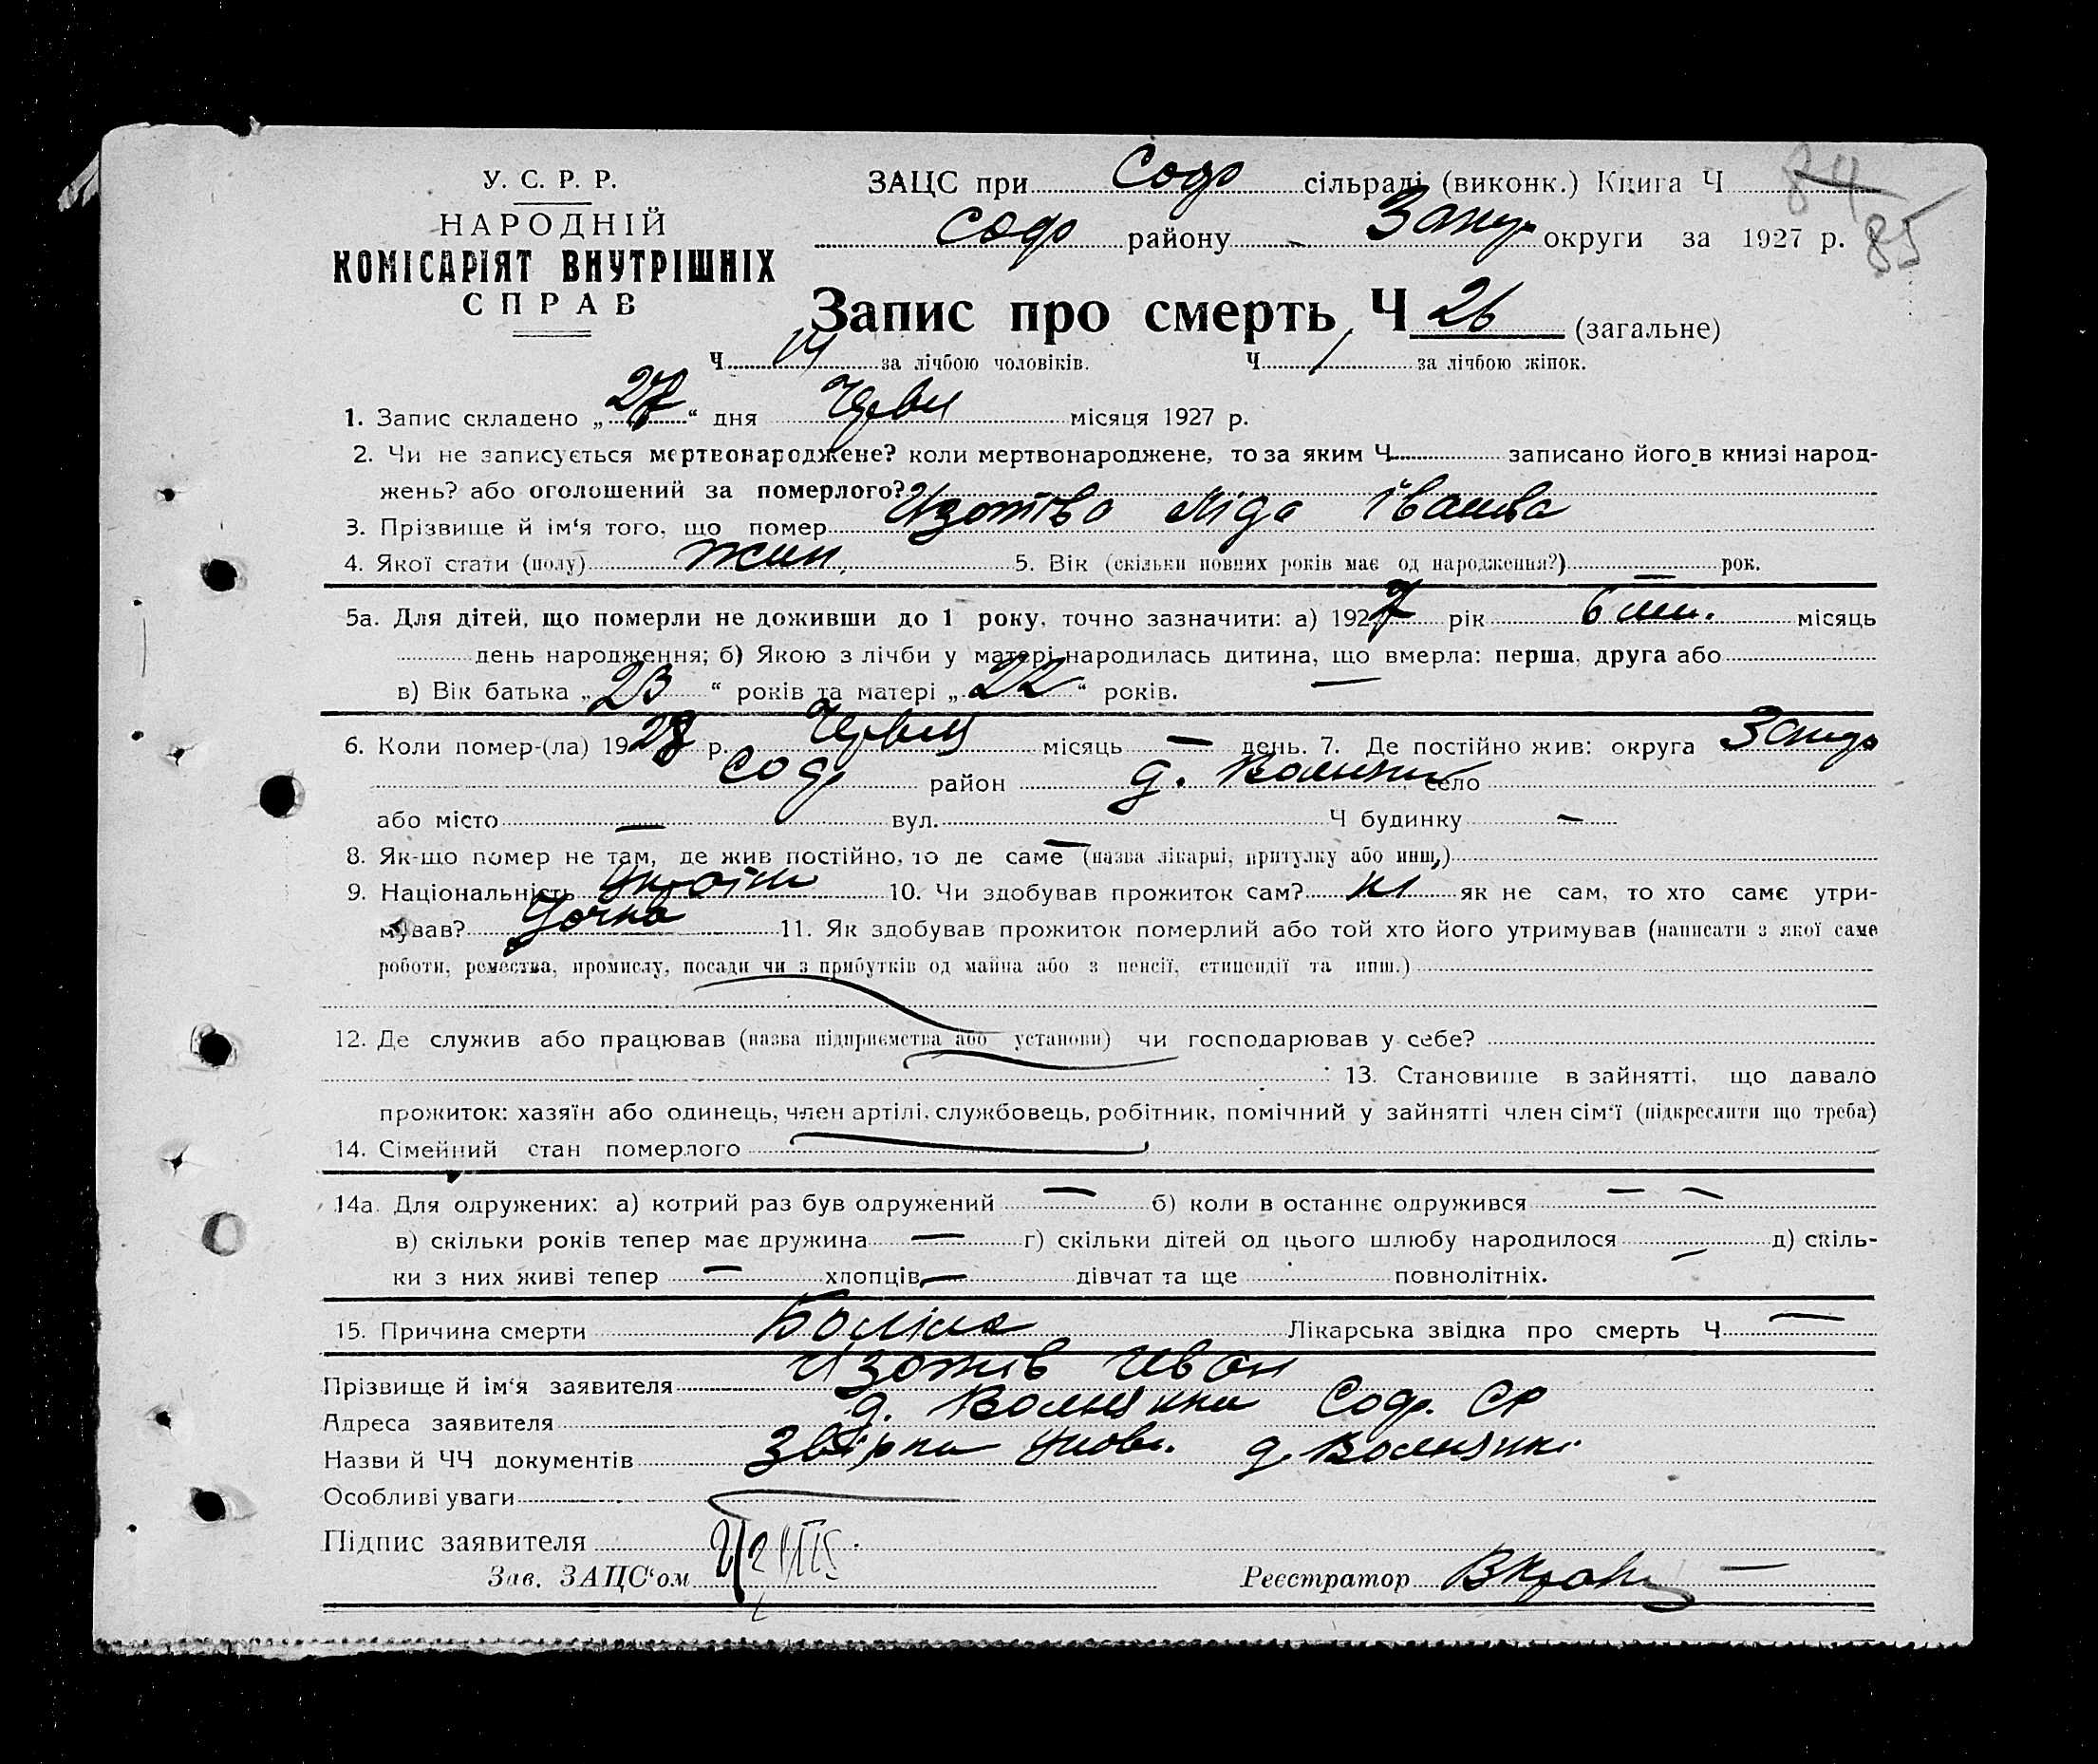 У. С. Р. Р.
НАРОДНІЙ
КОМІСАРІЯТ ВНУТРІШНІХ
СПРАВ
ЗАЦС при Соф сільраді (виконк.) Книга Ч 84
85
Соф району Запор округи за 1927 р.
Запис про смерть Ч 26 (загальне)
Ч за лічбою чоловіків. Ч за лічбою жінок.
1. Запис складено „27“ дня Червн місяця 1927 р.
2. Чи не записується мертвонароджене? коли мертвонароджене, то за яким Ч записано його в книзі народ-
жень? або оголошений за померлого?
3. Прізвище й ім‘я того, що помер Ізотова Ліда Іванівна
4. Якої стати (полу) жин. 5. Вік (скільки повних років має од народження?) — рок.
5а. Для дітей, що померли не доживши до 1 року, точно зазначити: а) 1927 рік 6 міс. місяць
день народження; б) Якою з лічби у матері народилась дитина, що вмерла: перша, друга або
в) Вік батька „23“ років та матері „22“ років. —
6. Коли помер-(ла) 19 р. Червня місяць — день. 7. Де постійно жив: округа Запор
Соф район д. село
або місто — вул. Ч будинку —
8. Як-що помер не там, де жив постійно, то де саме — (назва лікарні, притулку або инш.)
9. Національність 10. Чи здобував прожиток сам? ні як не сам, то хто саме утри-
мував? 11. Як здобував прожиток померлий або той хто його утримував (написати з якої саме
роботи, ремества, промислу, посади чи з прибутків од майна або з пенсії, стипендії та инш.)
12. Де служив або працював (назва підприємства або установи) чи господарював у себе?
13. Становище в зайнятті, що давало
прожиток: хазяїн або одинець, член артілі, службовець, робітник, помічний у зайнятті член сім‘ї (підкреслити що треба)
14. Сімейний стан померлого
14а. Для одружених: а) котрий раз був одружений — б) коли в останнє одружився — —
в) скільки років тепер має дружина — г) скільки дітей од цього шлюбу народилося — д) скіль-
ки з них живі тепер — хлопців — дівчат та ще повнолітніх.
15. Причина смерти Лікарська звідка про смерть Ч —
Прізвище й ім‘я заявителя Изотів Иван
Адреса заявителя д. Соф. СР
Назви й ЧЧ документів д.
Особливі уваги
Підпис заявителя
Зав. ЗАЦС‘ом Реєстратор